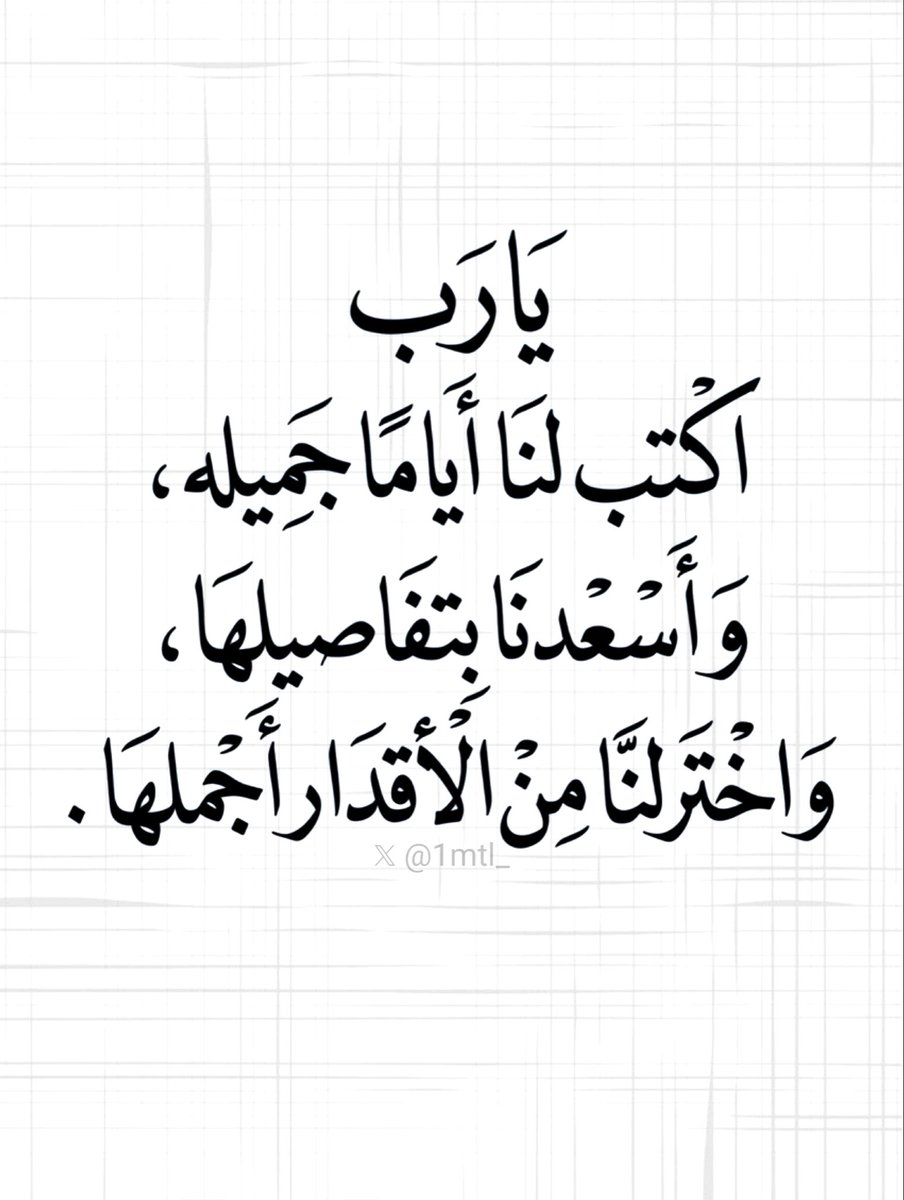 يَا رَب
اكْتب لنَا أَيامًا جَمِيله ،
وَأَسْعْدنَا بتفَاصيلهَا ،
وَاخْتَر لنَّا مِنْ الْأَقدَار أَجْملهَا .
X @1mtl_